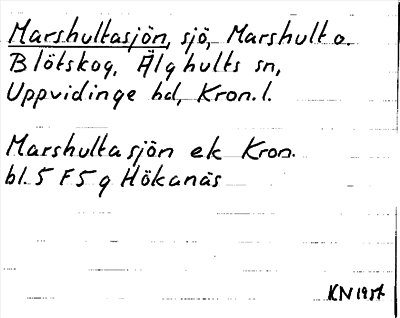 Marshultasjön, sjö, Marshult o.
Blötskog, Älghults sn,
Uppvidinge hd, Kron. l.
Marshultasjön ek Kron.
bl. 5 F 5 g Hökanäs
KN 1957